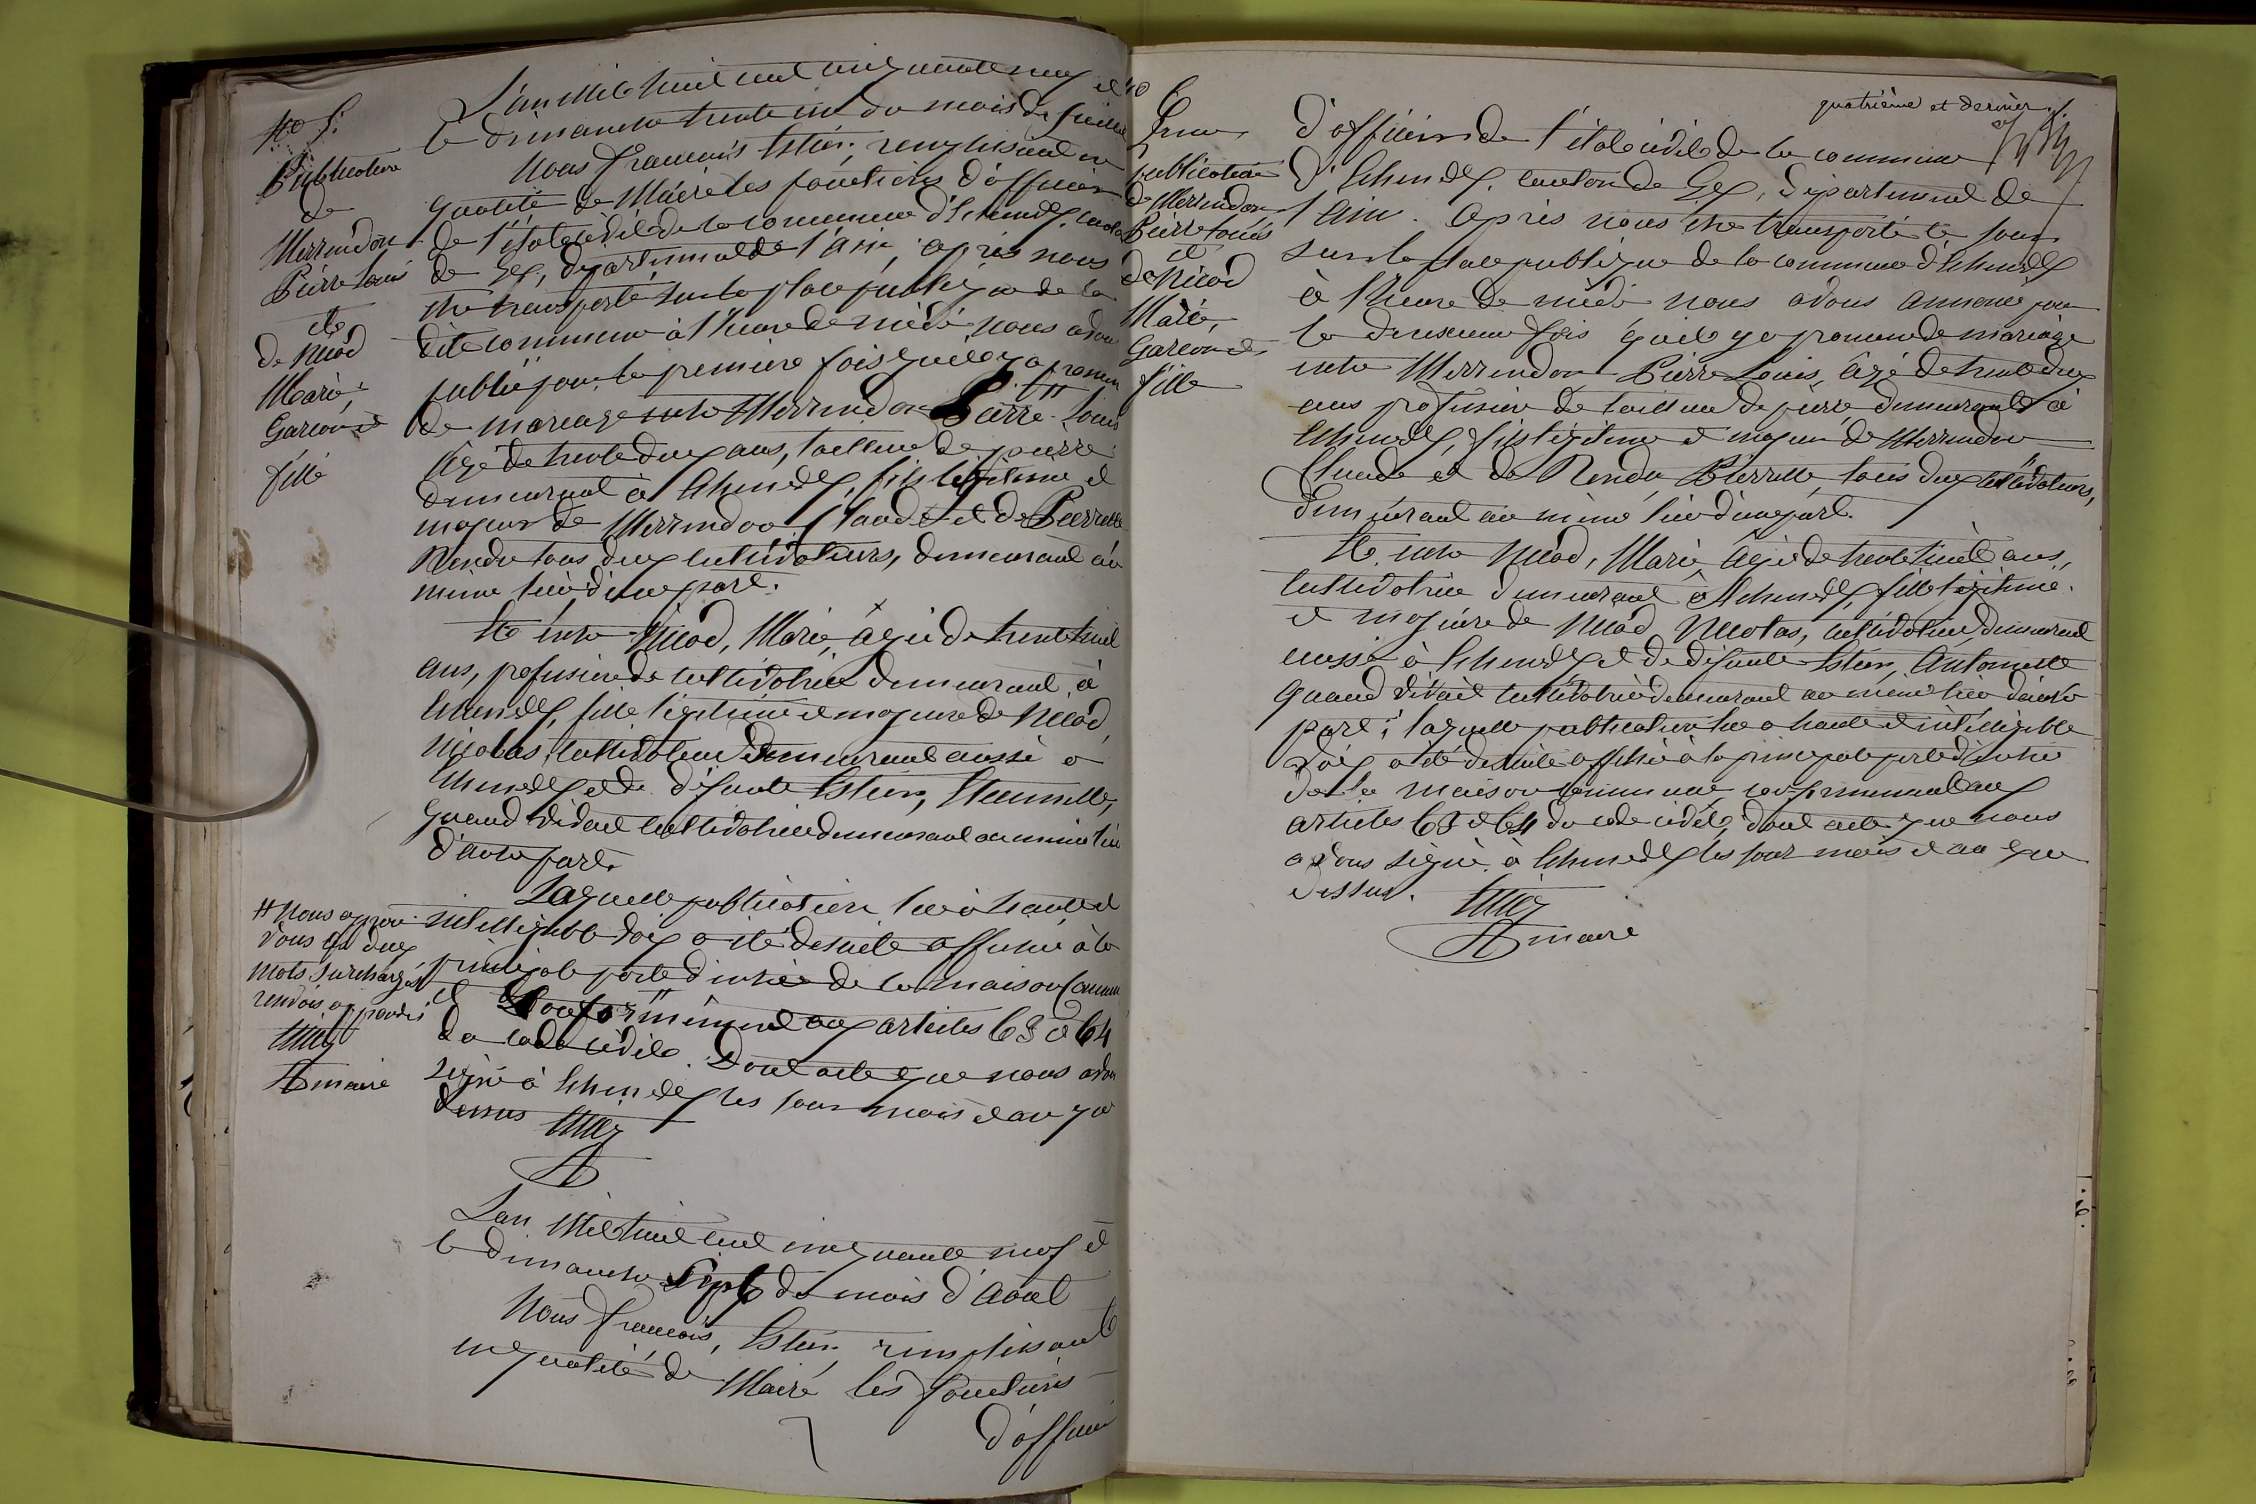 No 5.
Publication
de
Merrindon
Pierre Louis
et
de Nicod
Marie,
Garçon et
fille
L'an mil huit cent cinquante neuf et
le dimanche trente un du mois de Juillet
Nous François Estier, remplissant en
qualité de Maire les fonctions d'officier
de l'état civil de la commune d'Echenevex, canton
de Gex, département de l'Ain, après nous
être transporté sur la place publique de la
dite commune à l'heure de midi nous avons
publié pour la première fois qu'il y a promesse
de mariage entre Merrindon Pierre Louis
âgé de trente deux ans, tailleur de pierre
demeurant à Echenevex, fils légitime et
majeur de Merrindon Claude et de Pierrette
Rendu tous deux cultivateurs, demeurant au
même lieu d'une part.
Et entre Nicod, Marie, âgée de trente huit
ans, profession de cultivatrice demeurant à
Echenevex, fille légitime et majeure de Nicod,
Nicolas, cultivateur demeurant aussi à
Echenevex et de défunte Estier,
quand vivait cultivatrice demeurant au même lieu
d'autre part.
Laquelle publication lue à haute et
intelligible voix a été de suite affichée à la
principale porte d'entrée de la maison commune
et conformément aux articles 63 et 64
du code civil. Dont acte que nous avons
signé à Echenevex les jour mois et an que
dessus Estier
# Nous approu-
vons les deux
mots surchargés
renvois approuvés
Estier
maire
L'an Mil huit cent cinquante neuf et
le dimanche Sept du mois d'Août
Nous François, Estier, remplissant
en qualité de Maire les fonctions
d'officier
quatrième et dernier
publication
de Merrindon
Pierre Louis
et
de Nicod
Marie,
Garçon et
fille
d'officier de l'état civil de la commune
d'Echenevex, canton de Gex, département de
l'Ain. Après nous être transporté ce jour
sur la place publique de la commune d'Echenevex
à l'heure de midi nous avons annoncé pour
la deuxième fois qu'il y a promesse de mariage
entre Merrindon Pierre Louis, âgé de trente deux
ans profession de tailleur de pierre demeurant à
Echenevex, fils légitime et majeur de Merrindon
Claude et de Rendu Pierrette, tous deux cultivateurs,
demeurant au même lieu d'une part.
Et entre Nicod, Marie, âgée de trente huit ans,
cultivatrice demeurant à Echenevex, fille légitime
et majeure de Nicod Nicolas, cultivateur, demeurant
aussi à Echenevex et de défunte Estier, Antoinette
quand vivait cultivatrice demeurant au même lieu d'autre
part; laquelle publication lue à haute et intelligible
voix a été de suite affichée à la principale porte d'entrée
de la maison commune conformément aux
articles 63 et 64 du code civil, dont acte que nous
avons signé à Echenevex les jour mois et an que
dessus. Estier
maire